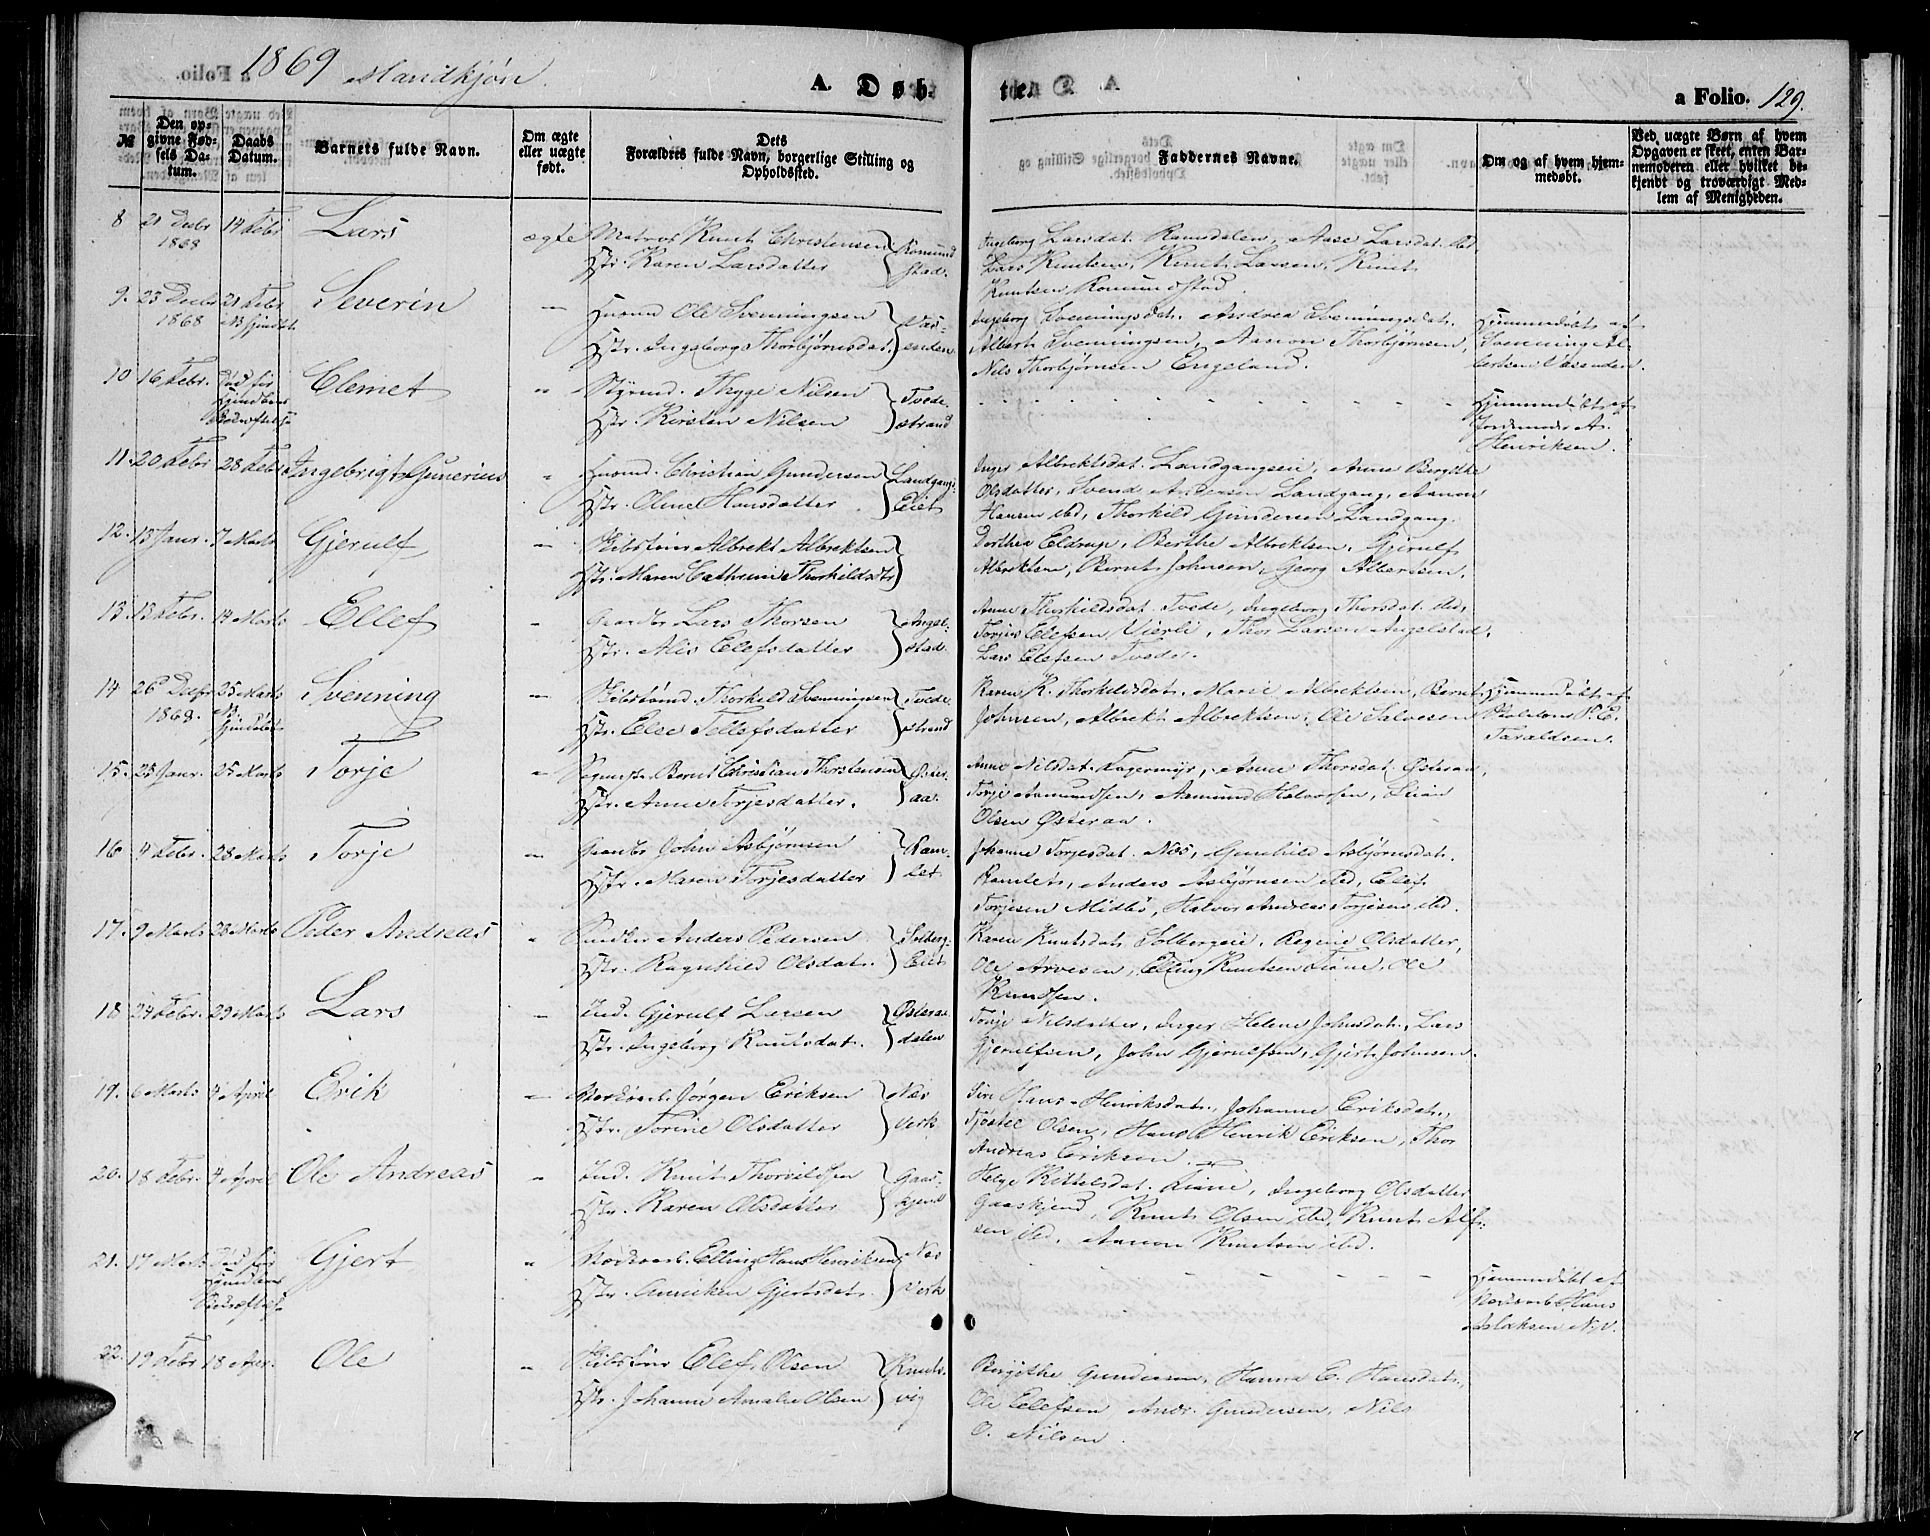 1869 Mandkjøn.
A. Døb-
te.
a Folio. 129.
№
Den op-
givne Fød-
sels Da-
tum.
Daabs
Datum.
Barnets fulde Navn.
Om ægte
eller uægte
født.
Dets
Forældres fulde Navn, borgerlige Stilling og
Opholdssted.
Faddernes Navne.
Om og af hvem hjem-
medøbt.
Ved uægte Børn af hvem
Opgaven er skeet, enten Bar-
nemoderen eller hvilket be-
kjendt og troværdigt Med-
lem af Menigheden.
8 21 Decbr 14 Febr Lars ægte Matros Knut Christensen Romund
1868 Hstr. Karen Larsdatter stad.
Ingeborg Larsdat. Ramsdalen, Aase Larsdat. ibd
Lars Knutsen, Knut Larsen, Knut
Knutsen Romundstad.
9. 23 Decbr 21 Febr Severin Husmd Ole Svenningsen Næs-
1868 Hstr. Ingeborg Thorbjørnsdat. enden
Ingeborg Svenningsdat. Andrea Svenningsdat.
Albert Svenningsen, Aanon Thorbjørnsen,
Nils Thorbjørnsen Engeland.
Hjemmedøbt af
Svenning Al-
bertsen
10 16 Febr. Død før Clemet Styrmd. Thygge Nilsen Tvede-
Hstr. Kirsten Nilsen strand
Hjemmedøbt af
Jordemoder A.
Henriksen.
11. 20 Febr 28 Febr Ingebrigt Gunerius Husmd. Christian Gundersen Landgangs-
Hstr. Oline Hansdatter Eiet
Inger Albrektsdat. Landgangseie, Anne Bergithe
Olsdatter, Svend Andersen Landgang, Aanon
Hansen ibd, Thorkild Gundersen Landgang.
12. 13 Janr. 7 Marts Gjerulf Albrekt Albrektsen
Hstr. Maren Cathrine Thorkildsdtr
Dorthea Eldrup, Berthe Albrektsen, Gjerulf
Albrektsen, Bernt Johnsen, Georg Albertsen.
13. 13 Febr. 14 Marts Ellef Gaardbr Lars Thorsen Angel-
Hstr. Alis Elefsdatter stad.
Anne Thorkildsdat. Tvede, Ingeborg Thorsdat. ibd,
Torjus Elefsen Vierli, Thor Larsen Angelstad,
Lars Elefsen Tvede.
14 26 Decbr 25 Marts Svenning Thorkild Svenningsen Tvede
1868. Hstr. Else Tellefsdatter strand
Karen K. Thorkildsdat. Marie Albrektsen, Bernt
Johnsen, Albrekt Albrektsen, Ole Salvesen
Hjemmedøbt af
Taraldsen.
15. 25 Janr. 25 Marts Torje Bernt Christian Thorstensen Øster-
Hstr. Anne Torjesdatter. aa.
Anne Nilsdat. Fagermyr, Anne Thorsdat. Østeraa,
Torje Aamundsen, Aamund Halvorsen,
Olsen Østeraa.
16 4 Febr. 28 Marts Torje Gaardbr John Asbjørnsen Ram-
Hstr. Maren Torjesdatter let
Johanne Torjesdat. Næs, Gunhild Asbjørnsdat.
Ramlet, Anders Asbjørnsen ibd, Elef
Torjesen Midbø, Halvor Andreas Torjesen ibd.
17. 9 Marts 28 Marts Peder Andreas Anders Pedersen Solberg-
Hstr. Ragnhild Olsdat. Eiet
Karen Knutsdat. Solbergeie, Regine Olsdatter,
Ole Arvesen, Elling Knutsen Tiane, Ole
Knudsen.
18 24 Febr. 29 Marts Lars Ind. Gjerulf Larsen Østeraa-
Hstr. Ingeborg Knutsdat. dalen
Torje Nilsdatter, Inger Helene Johnsdat., Lars
Gjerulfsen, John Gjerulfsen, Gjert Johnsen.
19. 6 Marts 4 April Erik Jørgen Eriksen Næs
Hstr. Torine Olsdatter Verk
Siri Hans-Henriksdat., Johanne Eriksdat.,
Tjostel Olsen, Hans Henrik Eriksen, Thor
Andreas Eriksen.
20. 18 Febr. 4 April Ole Andreas Ind. Knut Thorkildsen Gaas-
Hstr. Karen Olsdatter kjend
Helge Kittelsdat. Tiane, Ingeborg Olsdatter
Gaaskjend, Knut Olsen ibd, Knut Alf-
sen ibd. Aanon Knutsen ibd.
21. 17 Marts Død før Gjert Elling Hans Henriksen Næs
Hstr. Anniken Gjertsdat. Verk
Hjemmedøbt af
Hans
Aslaksen N.V.
22. 19 Febr 18 Apr. Ole Elef Olsen Knuts-
Hstr. Johanne Amalie Olsen vig
Birgithe Gundersen, Hanna E. Hansdat.,
Ole Elefsen Andr. Gundersen, Nils
O. Nilsen.